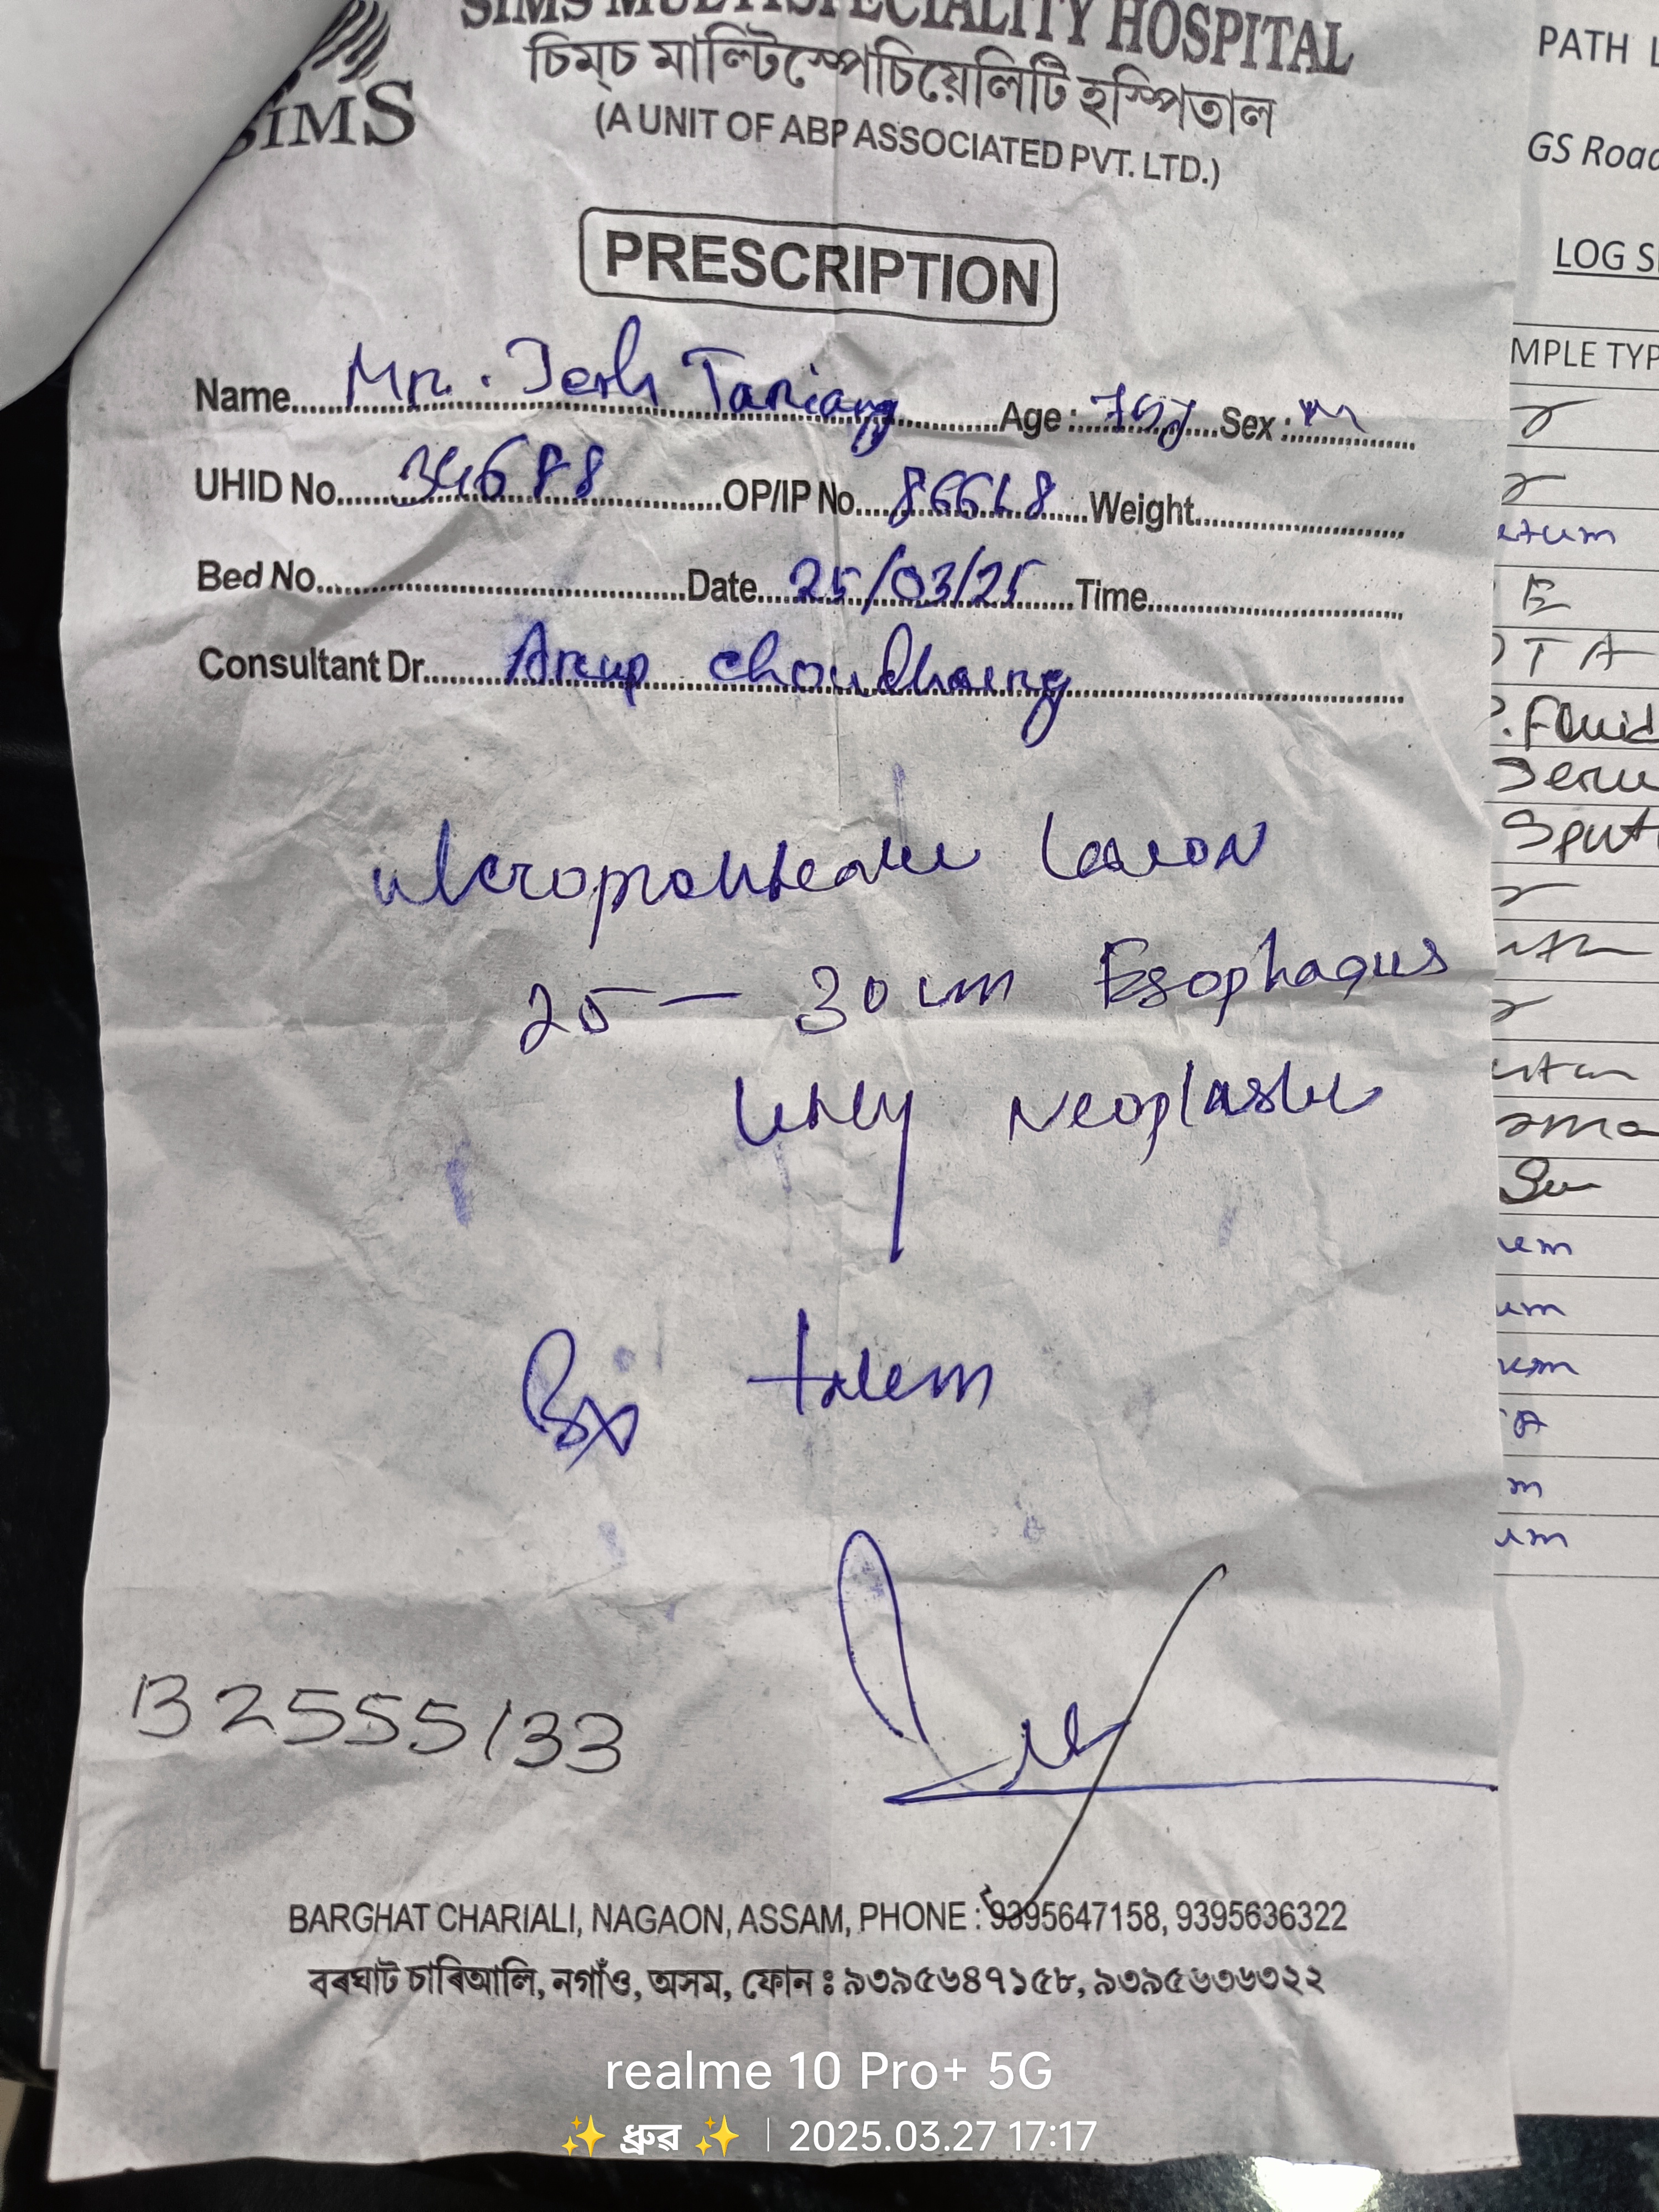 SIMS MULTISPECIALITY HOSPITAL
চিম্‌চ মাল্টিস্পেচিয়েলিটি হস্পিতাল
(A UNIT OF ABP ASSOCIATED PVT. LTD.)
SIMS
PRESCRIPTION
Name Mr. Age: 75y Sex: M
UHID No. 34688 OP/IP No. Weight
Bed No. Date 25/03/25 Time
Consultant Dr. Arup Choudhury
ulceroproliferative lesion
25 — 30 cm Esophagus
likely Neoplastic
Bx taken
B2555/33
BARGHAT CHARIALI, NAGAON, ASSAM, PHONE : 9395647158, 9395636322
বৰঘাট চাৰিআলি, নগাঁও, অসম, ফোন : ৯৩৯৫৬৪৭১৫৮, ৯৩৯৫৬৩৬৩২২
PATH
GS Road
LOG
MPLE TYP
E
TA
Fluid
realme 10 Pro+ 5G
✨ ধ্ৰুৱ ✨ | 2025.03.27 17:17